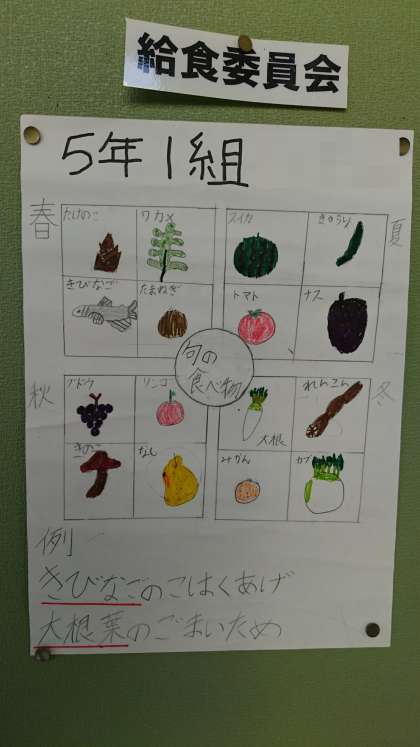 給食委員会
5年1組
春
たけのこ
ワカメ
きびなご
たまねぎ
夏
スイカ
きゅうり
トマト
ナス
旬の
食べ物
秋
ブドウ
リンゴ
きのこ
なし
冬
大根
れんこん
みかん
カブ
例
きびなごのこはくあげ
大根葉のごまいため